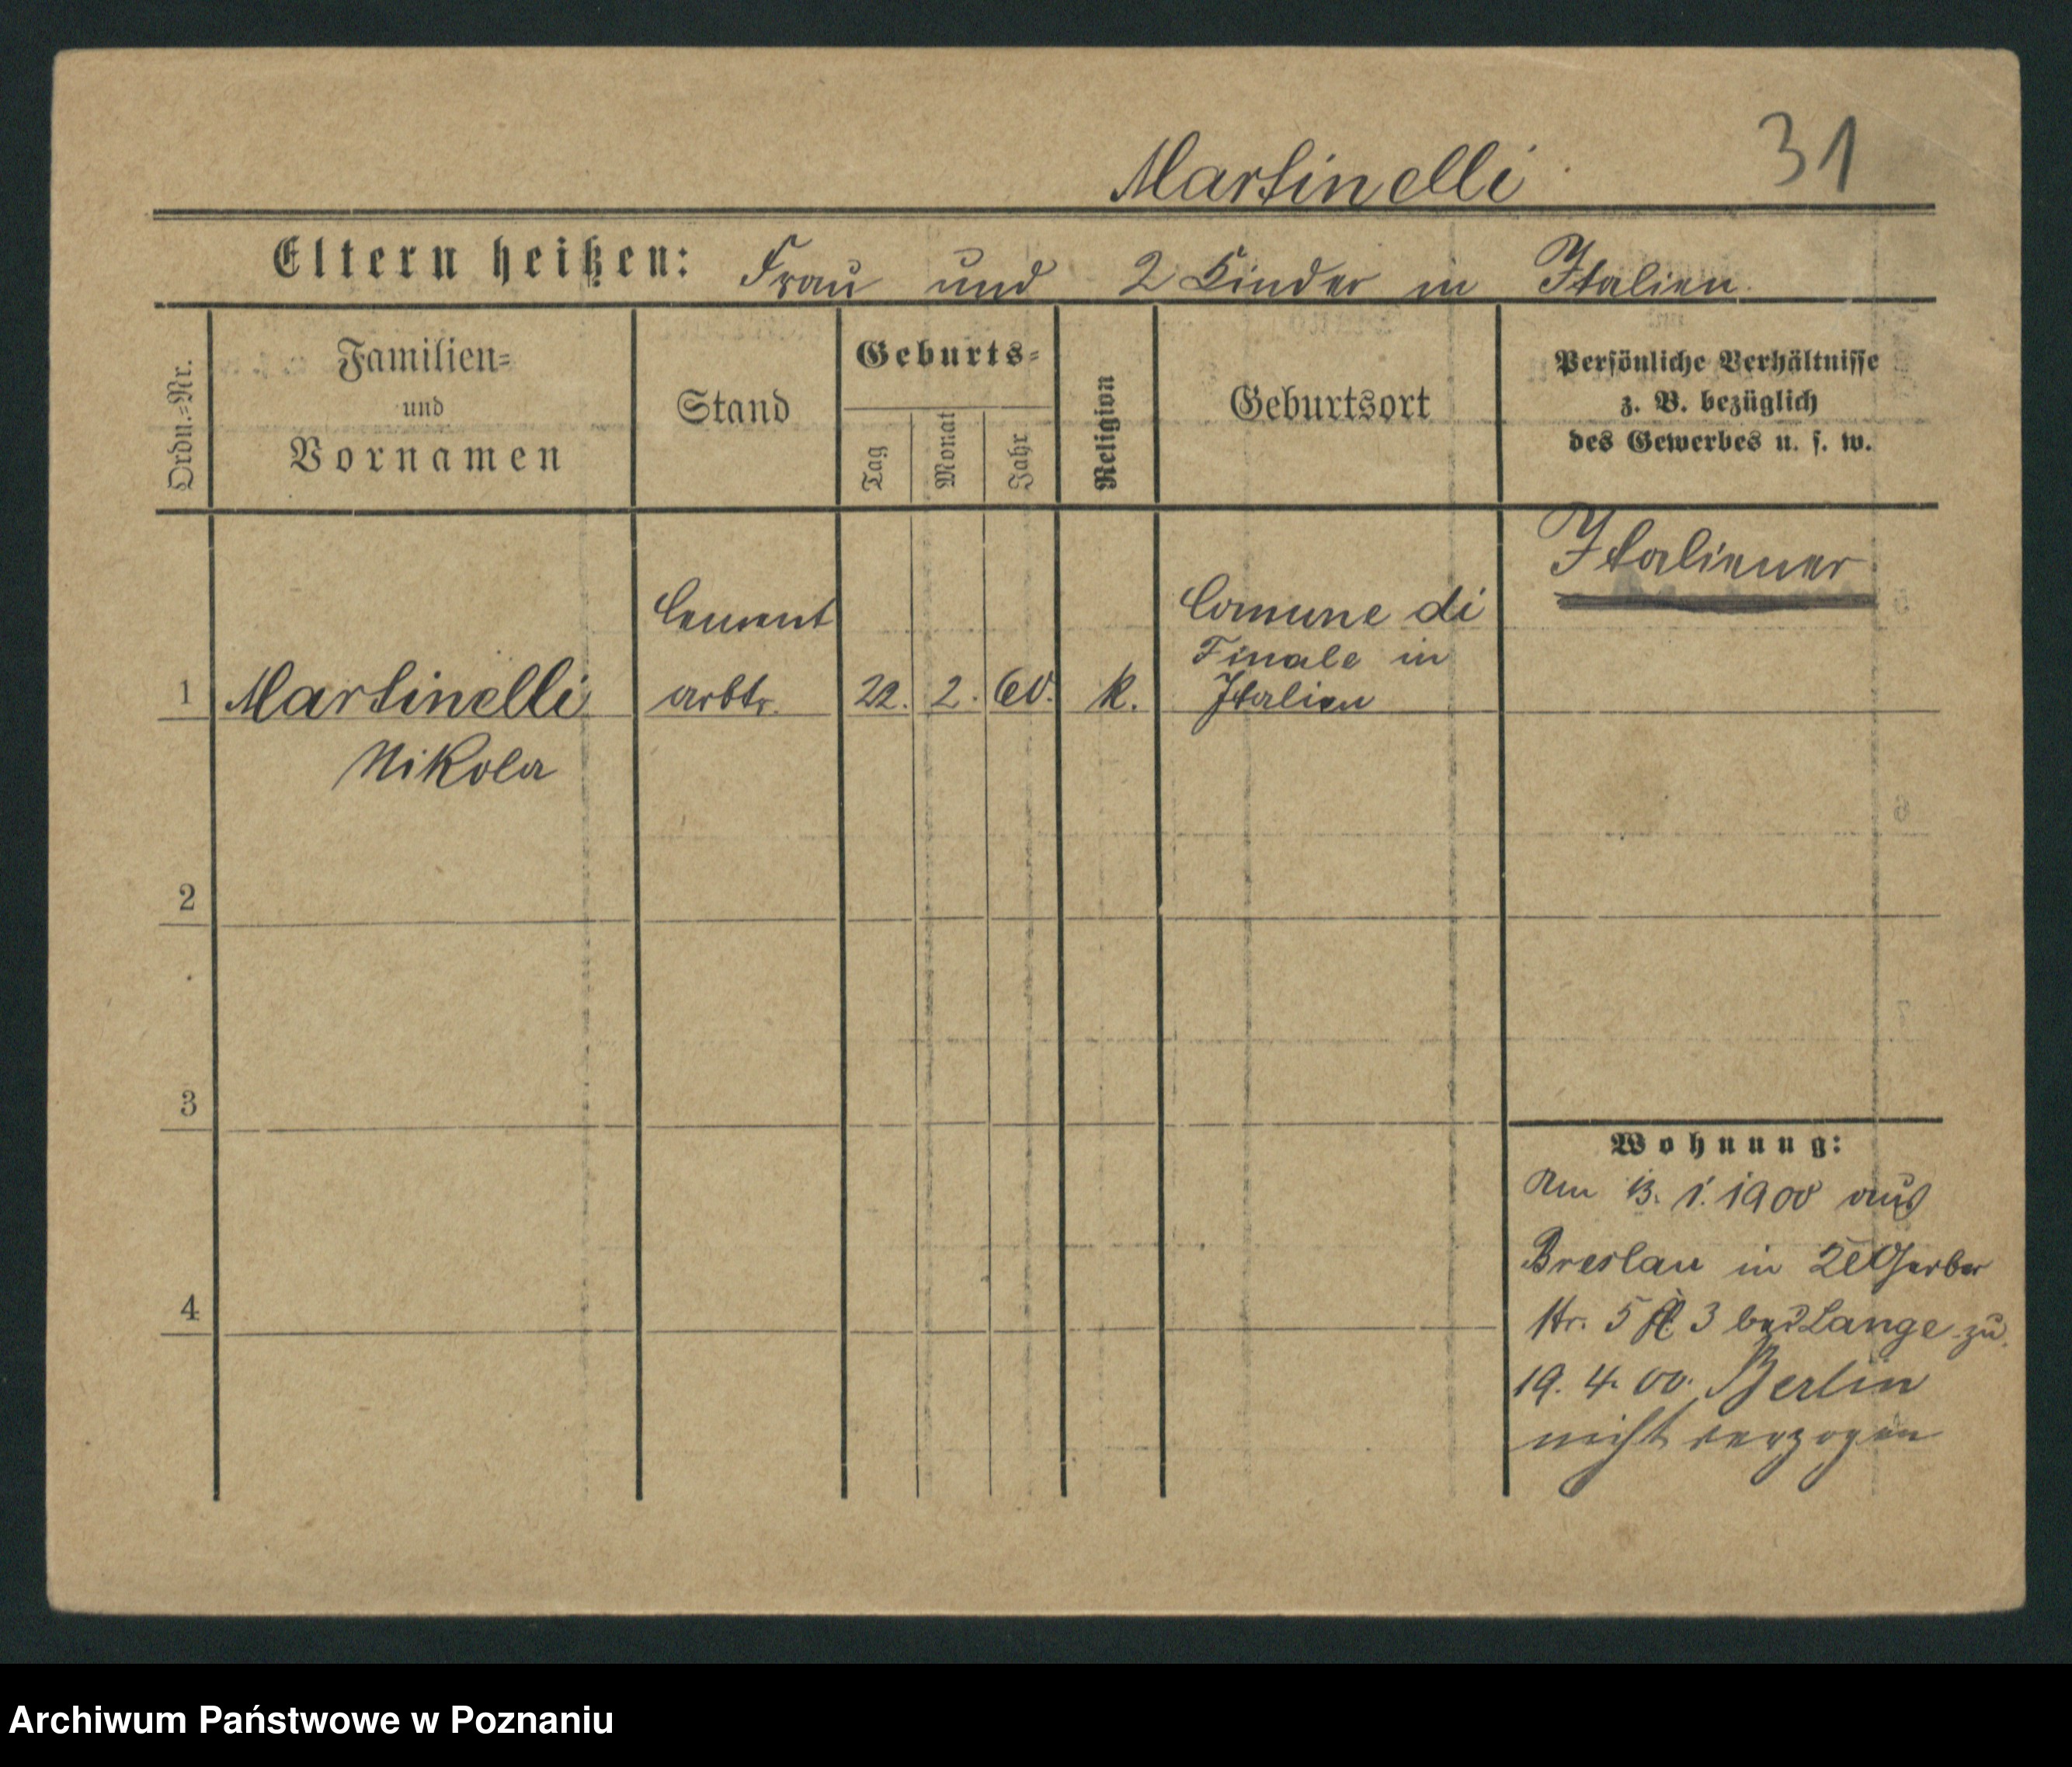 Martinelli 31
Eltern heißen: Frau und 2 Kinder in Italien.
Ordn.=Nr.
Familien=
und
Vornamen
Stand
Geburts=
Tag
Monat
Jahr
Religion
Geburtsort
Persönliche Verhältnisse
z. B. bezüglich
des Gewerbes u. s. w.
Italiener
Cement
arbtr.
1 Martinelli
Nikola
22. 2. 60. k.
Comune di
Finale in
Italien
2
3
4
Wohnung:
Am 13. 1. 1900 aus
Breslau in Gerber
str. 5 3 bei Lange zu.
19. 4. 00. Berlin
nicht verzogen
Archiwum Państwowe w Poznaniu